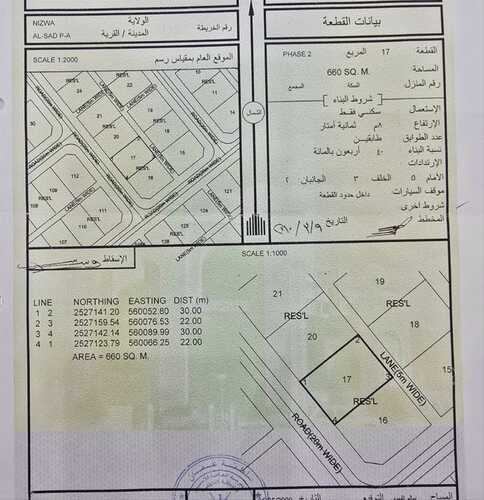 NIZWA
الولاية
AL-SAD P-A
المدينة / القرية
رقم الخريطة
SCALE 1:2000
الموقع العام بمقياس رسم
بيانات القطعة
القطعة 17 المربع PHASE 2
المساحة 660 SQ. M.
رقم المنزل السكة المجمع
شروط البناء
الإستعمال سكني فقط
الإرتفاع ٨م ثمانية أمتار
عدد الطوابق طابقين
نسبة البناء ٤٠ أربعون بالمائة
الإرتدادات
الأمام ٥ الخلف ٣ الجانبان ٢
موقف السيارات داخل حدود القطعة
شروط اخرى
المخطط
التاريخ
الشمال
RES'L
LANE(5m WIDE)
ROAD(28m WIDE)
RES'L
21
19
20
18
17
16
RES'L
30
31
114
113
112
111
110
107
الإسقاط
SCALE 1:1000
LINE NORTHING EASTING DIST (m)
1 2 2527141.20 560052.80 30.00
2 3 2527159.54 560076.53 22.00
3 4 2527142.14 560089.99 30.00
4 1 2527123.79 560066.25 22.00
AREA = 660 SQ. M.
21
19
RES'L
RES'L
20
2
18
LANE(5m WIDE)
1
17
3
RES'L
4
16
ROAD(28m WIDE)